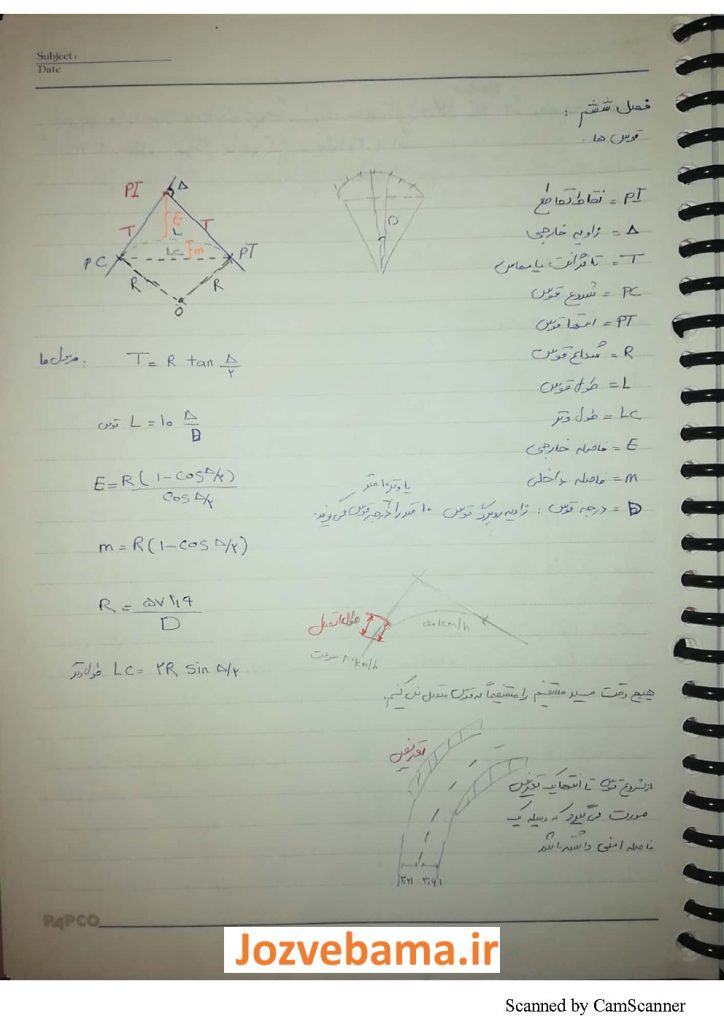 Subject:
Date
فصل ششم :
قوس ها :
PI = نقاط تقاطع
Δ = زاویه خارجی
T = تانژانت یا مماس
PC = شروع قوس
PT = انتها قوس
R = شعاع قوس
L = طول قوس
Lc = طول وتر
E = فاصله خارجی
m = فاصله داخلی
D = درجه قوس : زاویه روبروی قوس ۱۰ متر را درجه قوس می گویند.
یا وتر ۱۰ متر
PI Δ
T E T
L
Lc m
PC PT
R R
O
D
فرمول ها :
T = R tan Δ/۲
قوس L = ۱۰ Δ/D
E = R(1 - cos Δ/۲) / cos Δ/۲
m = R(1 - cos Δ/۲)
R = ۵۷۲,۹۶ / D
طول وتر Lc = ۲R sin Δ/۲
طول اتصال
۵۰ km/h
سرعت ۸۰ km/h
هیچ وقت مسیر مستقیم را مستقیماً به قوس متصل نمی کنیم.
تعریض
از شروع قوس تا انتها یک تعریض
صورت می گیرد که وسیله یک
فاصله امنی داشته باشد
۳,۶۱ ۳,۶۱
PAPCO
Jozvebama.ir
Scanned by CamScanner